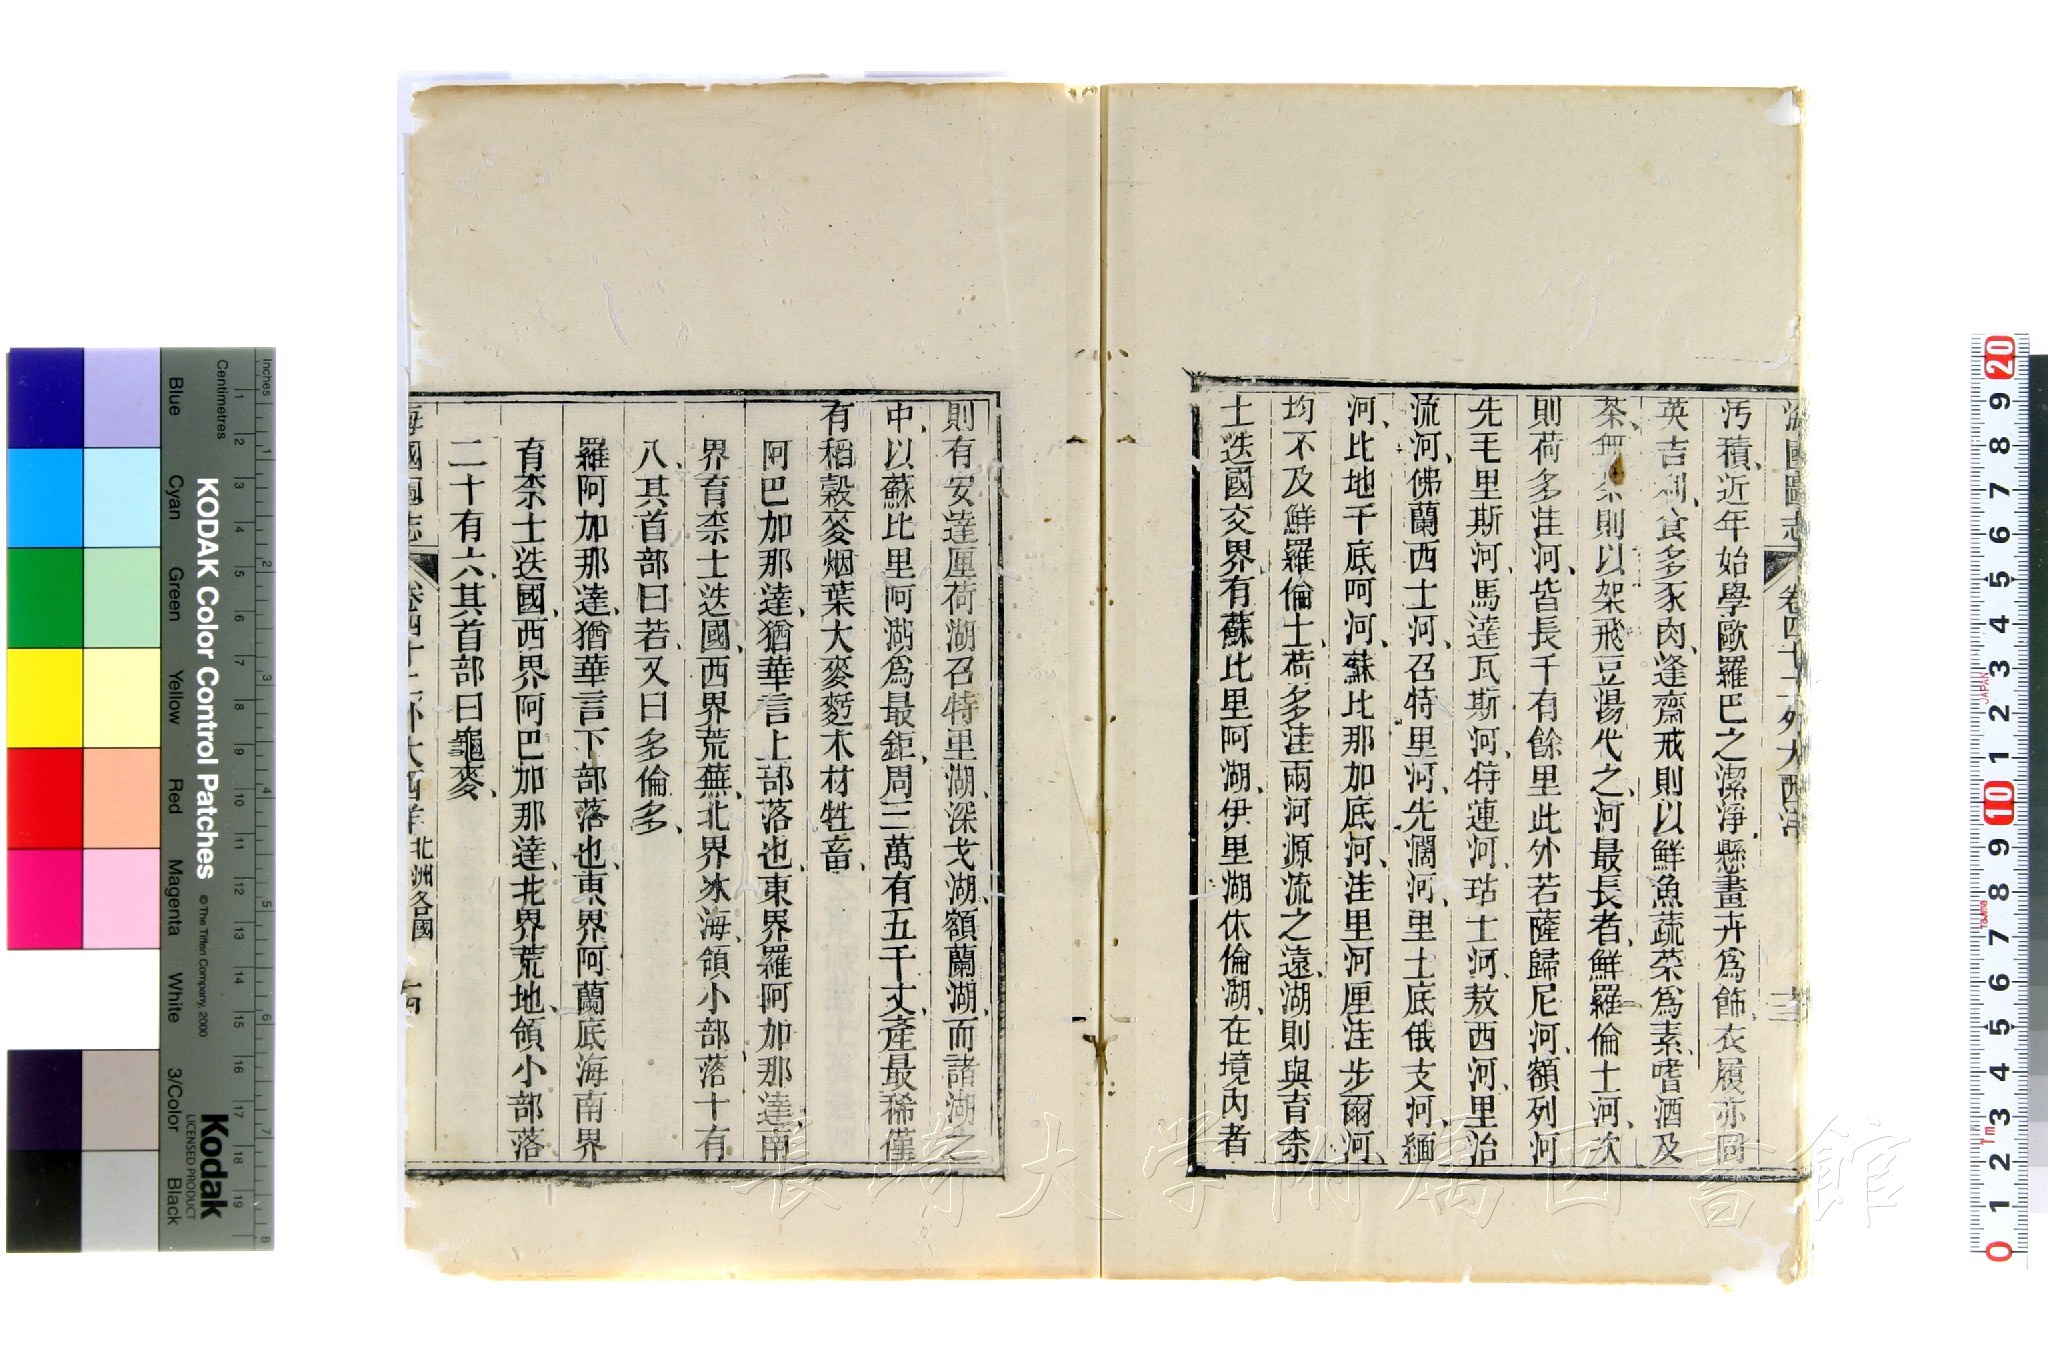 海國圖志 卷四十二 外大西洋
汚積、近年始學歐羅巴之潔淨、懸畫卉爲飾、衣履亦同
英吉利、食多豕肉、逢齋戒則以鮮魚蔬菜爲素、嗜酒及
茶、無茶則以架飛豆湯代之、河最長者、鮮羅倫士河、次
則荷多洼河、皆長千有餘里、此外若薩歸尼河、額列河
先毛里斯河、馬達瓦斯河、特連河、玷士河、敖西河、里治
流河、佛蘭西士河、召特里河、先濶河、里士底俄支河、緬
河、比地千底阿河、蘇比那加底河、洼里河、厘洼步爾河、
均不及鮮羅倫士、荷多洼兩河源流之遠、湖則與育柰
士迭國交界、有蘇比里阿湖、伊里湖、休倫湖、在境內者
則有安達厘荷湖、召特里湖、深戈湖、額蘭湖、而諸湖之
中、以蘇比里阿湖爲最鉅、周三萬有五千丈、產最稀、僅
有稻穀麥烟葉大麥麪木材牲畜、
阿巴加那達、猶華言上部落也、東界羅阿加那達、南
界育柰士迭國、西界荒蕪、北界冰海、領小部落十有
八、其首部曰若、又曰多倫多、
羅阿加那達、猶華言下部落也、東界阿蘭底海、南界
育柰士迭國、西界阿巴加那達、北界荒地、領小部落
二十有六、其首部曰龜麥、
海國圖志 卷四十二 外大西洋 北洲各國
KODAK Color Control Patches
© The Tiffen Company, 2000
Kodak
LICENSED PRODUCT
Inches
Centimetres
Blue
Cyan
Green
Yellow
Red
Magenta
White
3/Color
Black
長崎大学附属図書館
JAPAN